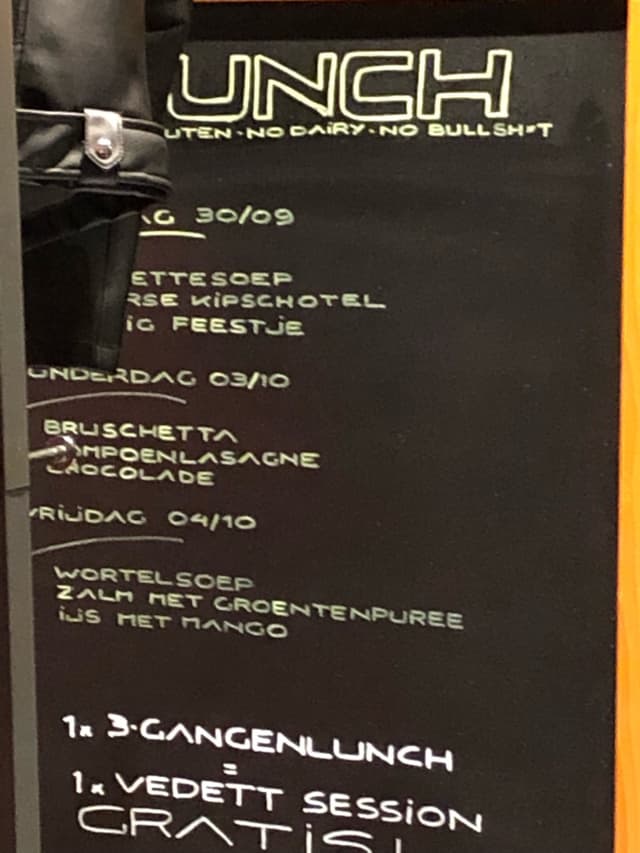 UNCH
UTEN - NO DAIRY - NO BULLSH*T
AG 30/09
ETTESOEP
RSE KIPSCHOTEL
IG FEESTJE
ONDERDAG 03/10
BRUSCHETTA
OMPOENLASAGNE
CHOCOLADE
VRIJDAG 04/10
WORTELSOEP
ZALM MET GROENTENPUREE
IJS MET MANGO
1x 3-GANGENLUNCH
=
1x VEDETT SESSION
GRATIS!